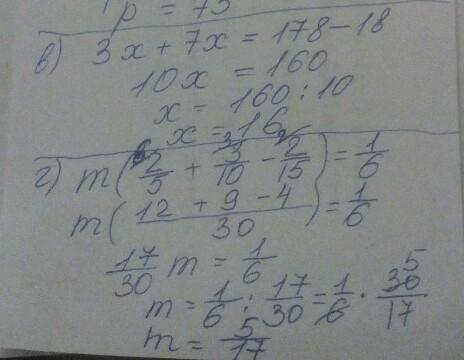 p = 75
в) 3x + 7x = 178 - 18
10x = 160
x = 160 : 10
x = 16
г) m(2/5 + 3/10 - 2/15) = 1/6
m((12 + 9 - 4)/30) = 1/6
17/30 m = 1/6
m = 1/6 : 17/30 = 1/6 · 30/17
m = 5/17